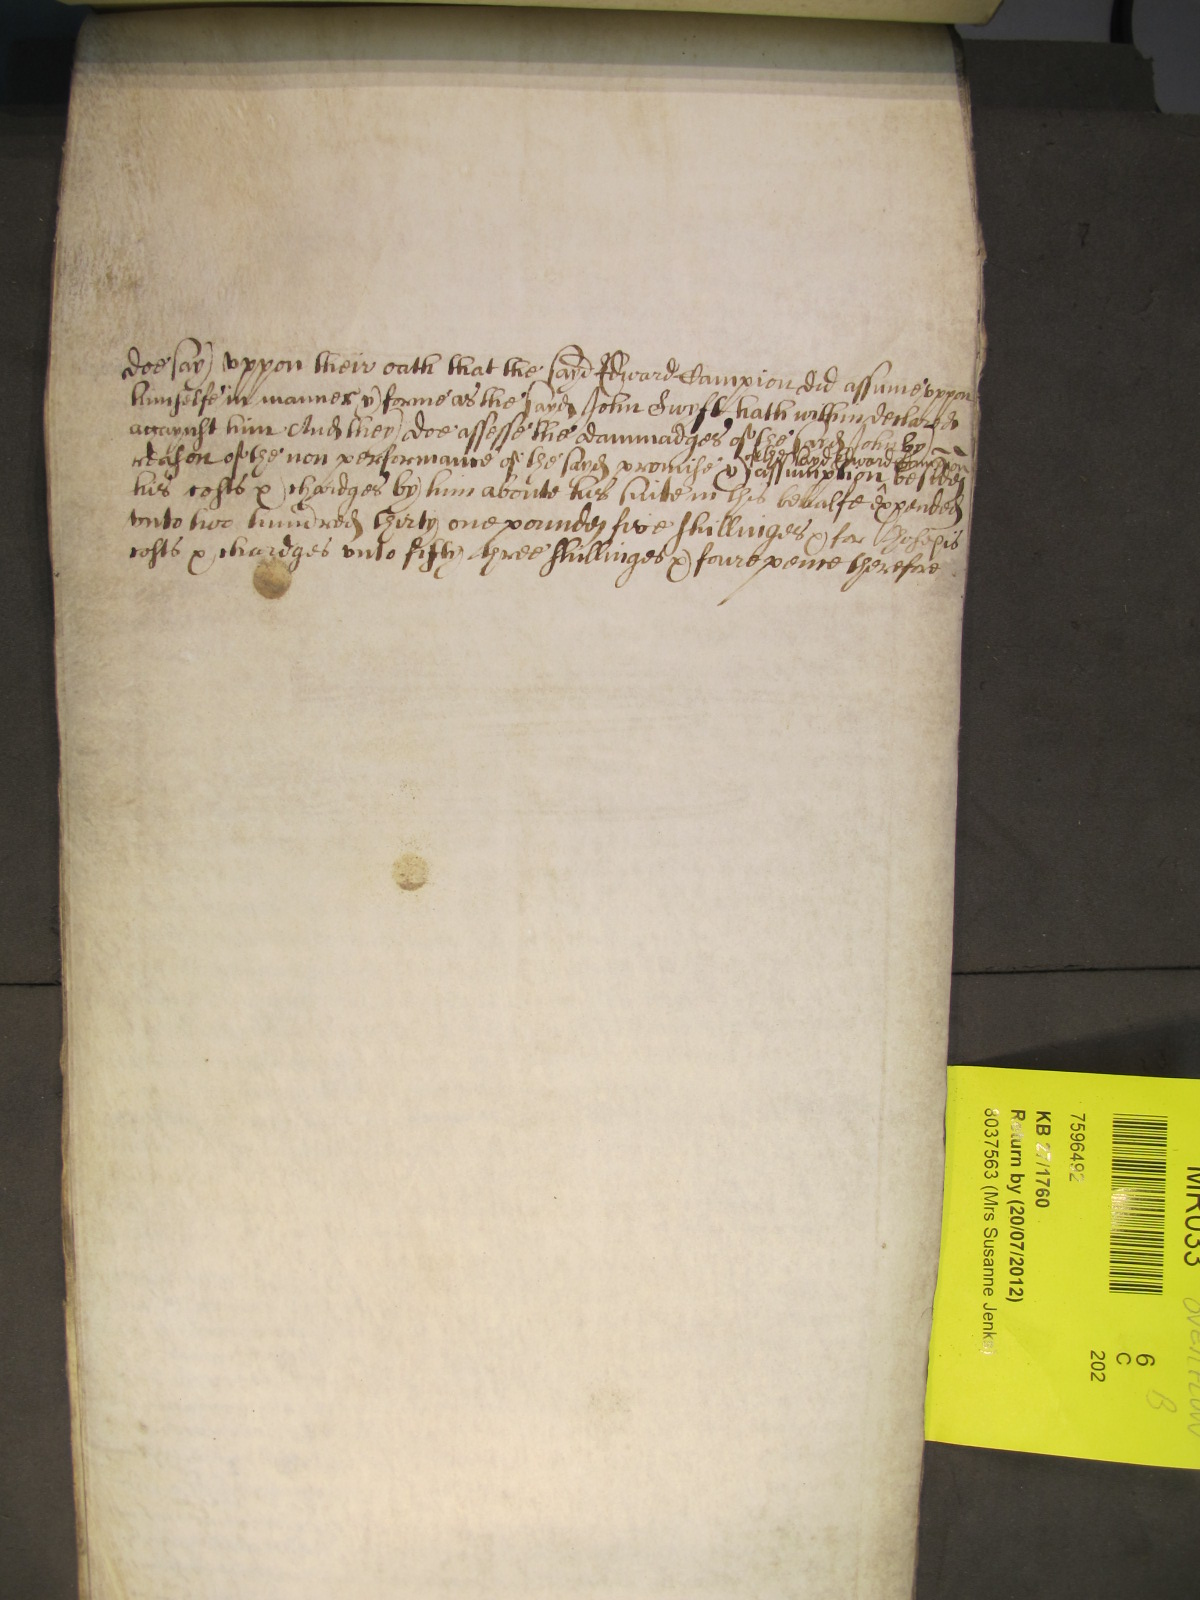 doe say uppon their oath that the sayd Edward Campion did assume uppon
himselfe in manner & forme as the sayd John Swyft hath within declared
agaynst him And they doe assesse the dammadges of the sayd John by
of the sayd Edward Campion
reason of the non performance of the sayd promise & assumption besides
his costs & chardges by him aboute his suite in this behalfe expended
unto two hundred thirty one poundes five shillinges & for
costs & chardges unto fifty three shillinges & foure pence therefore
MR033
OVERFLOW
B
6
C
202
7596492
KB 27/1760
Return by (20/07/2012)
8037563 (Mrs Susanne Jenks)